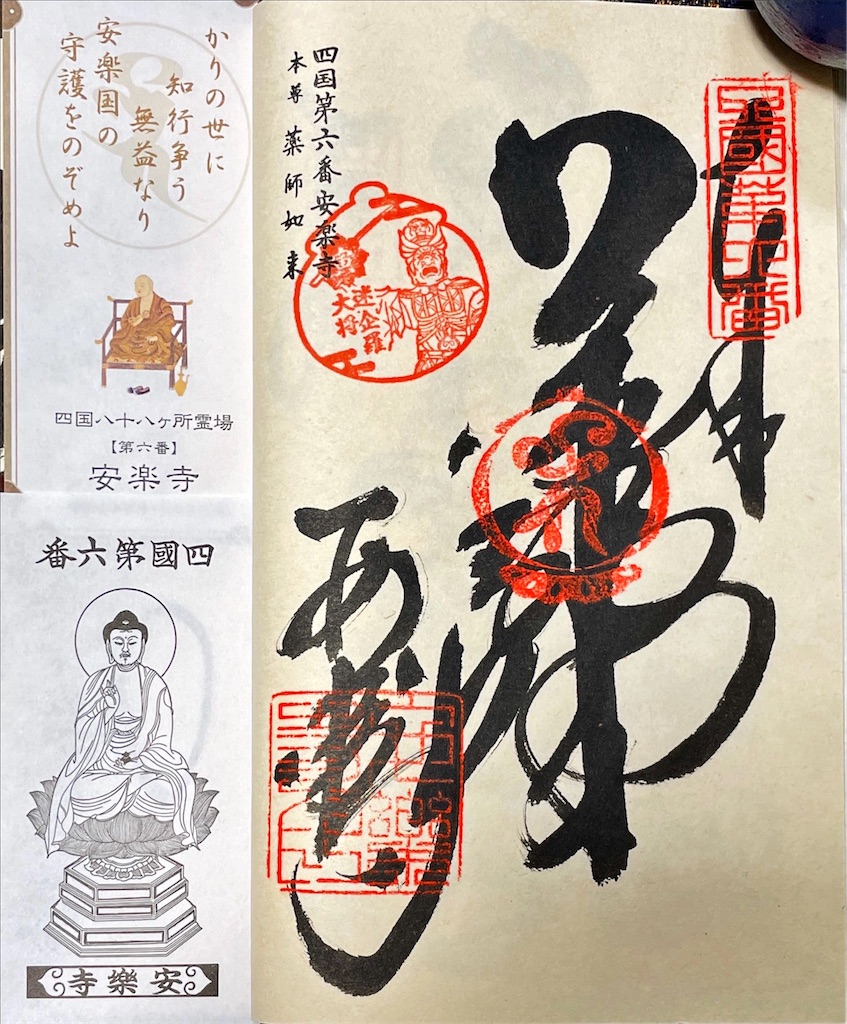 かりの世に
知行争う
無益なり
安楽国の
守護をのぞめよ
四国八十八ヶ所霊場
【第六番】
安楽寺
四國第六番
安樂寺
四国第六番安楽寺
本尊 薬師如来
迷企羅
大将
四國第六番
奉拝